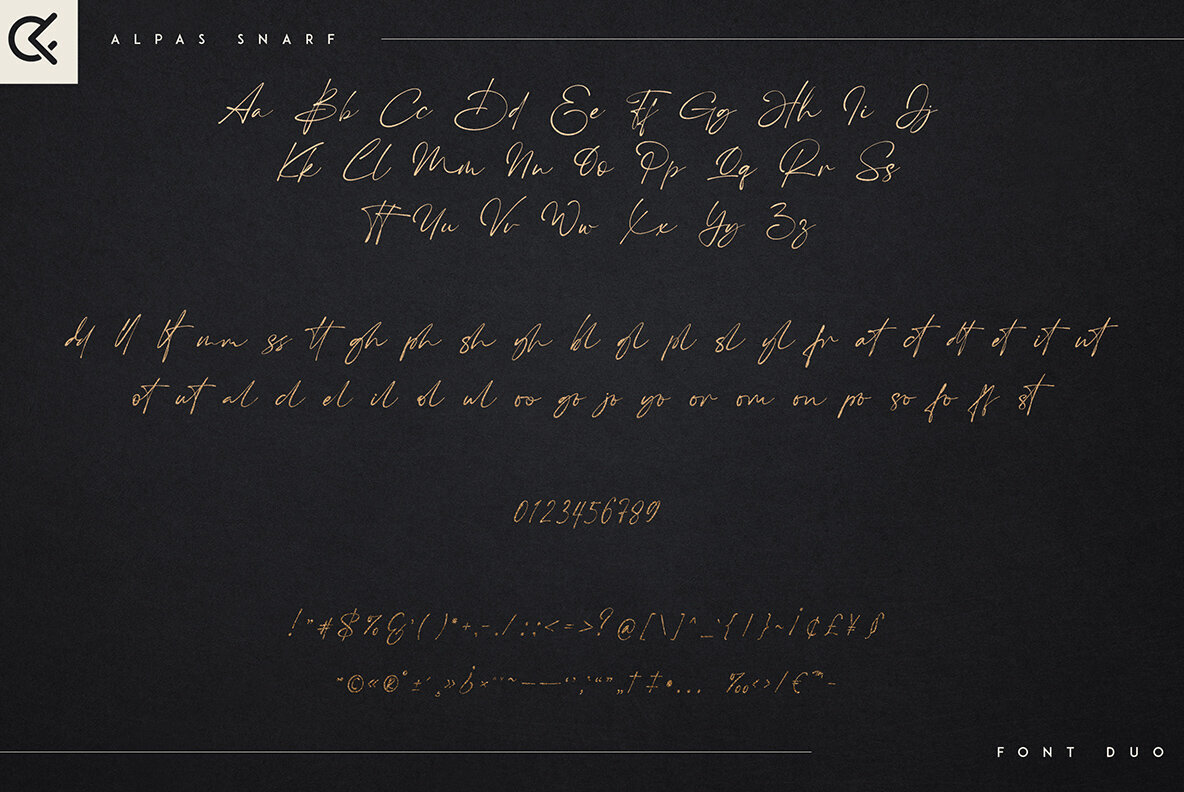 ALPAS SNARF
Aa Bb Cc Dd Ee Ff Gg Hh Ii Jj
Kk Ll Mm Nn Oo Pp Qq Rr Ss
Tt Uu Vv Ww Xx Yy Zz
dd ll lt mm ss tt gh ph sh yh bl gl pl sl yl fr at ct dt et it ut
ot ut al cl el il ol ul oo go jo yo or om on po so fo ff st
0123456789
!"#$%&'()*+,-./:;<=>?@[\]^_`{|}~¡¢£¥
©«®°±´¸»¿×
FONT DUO